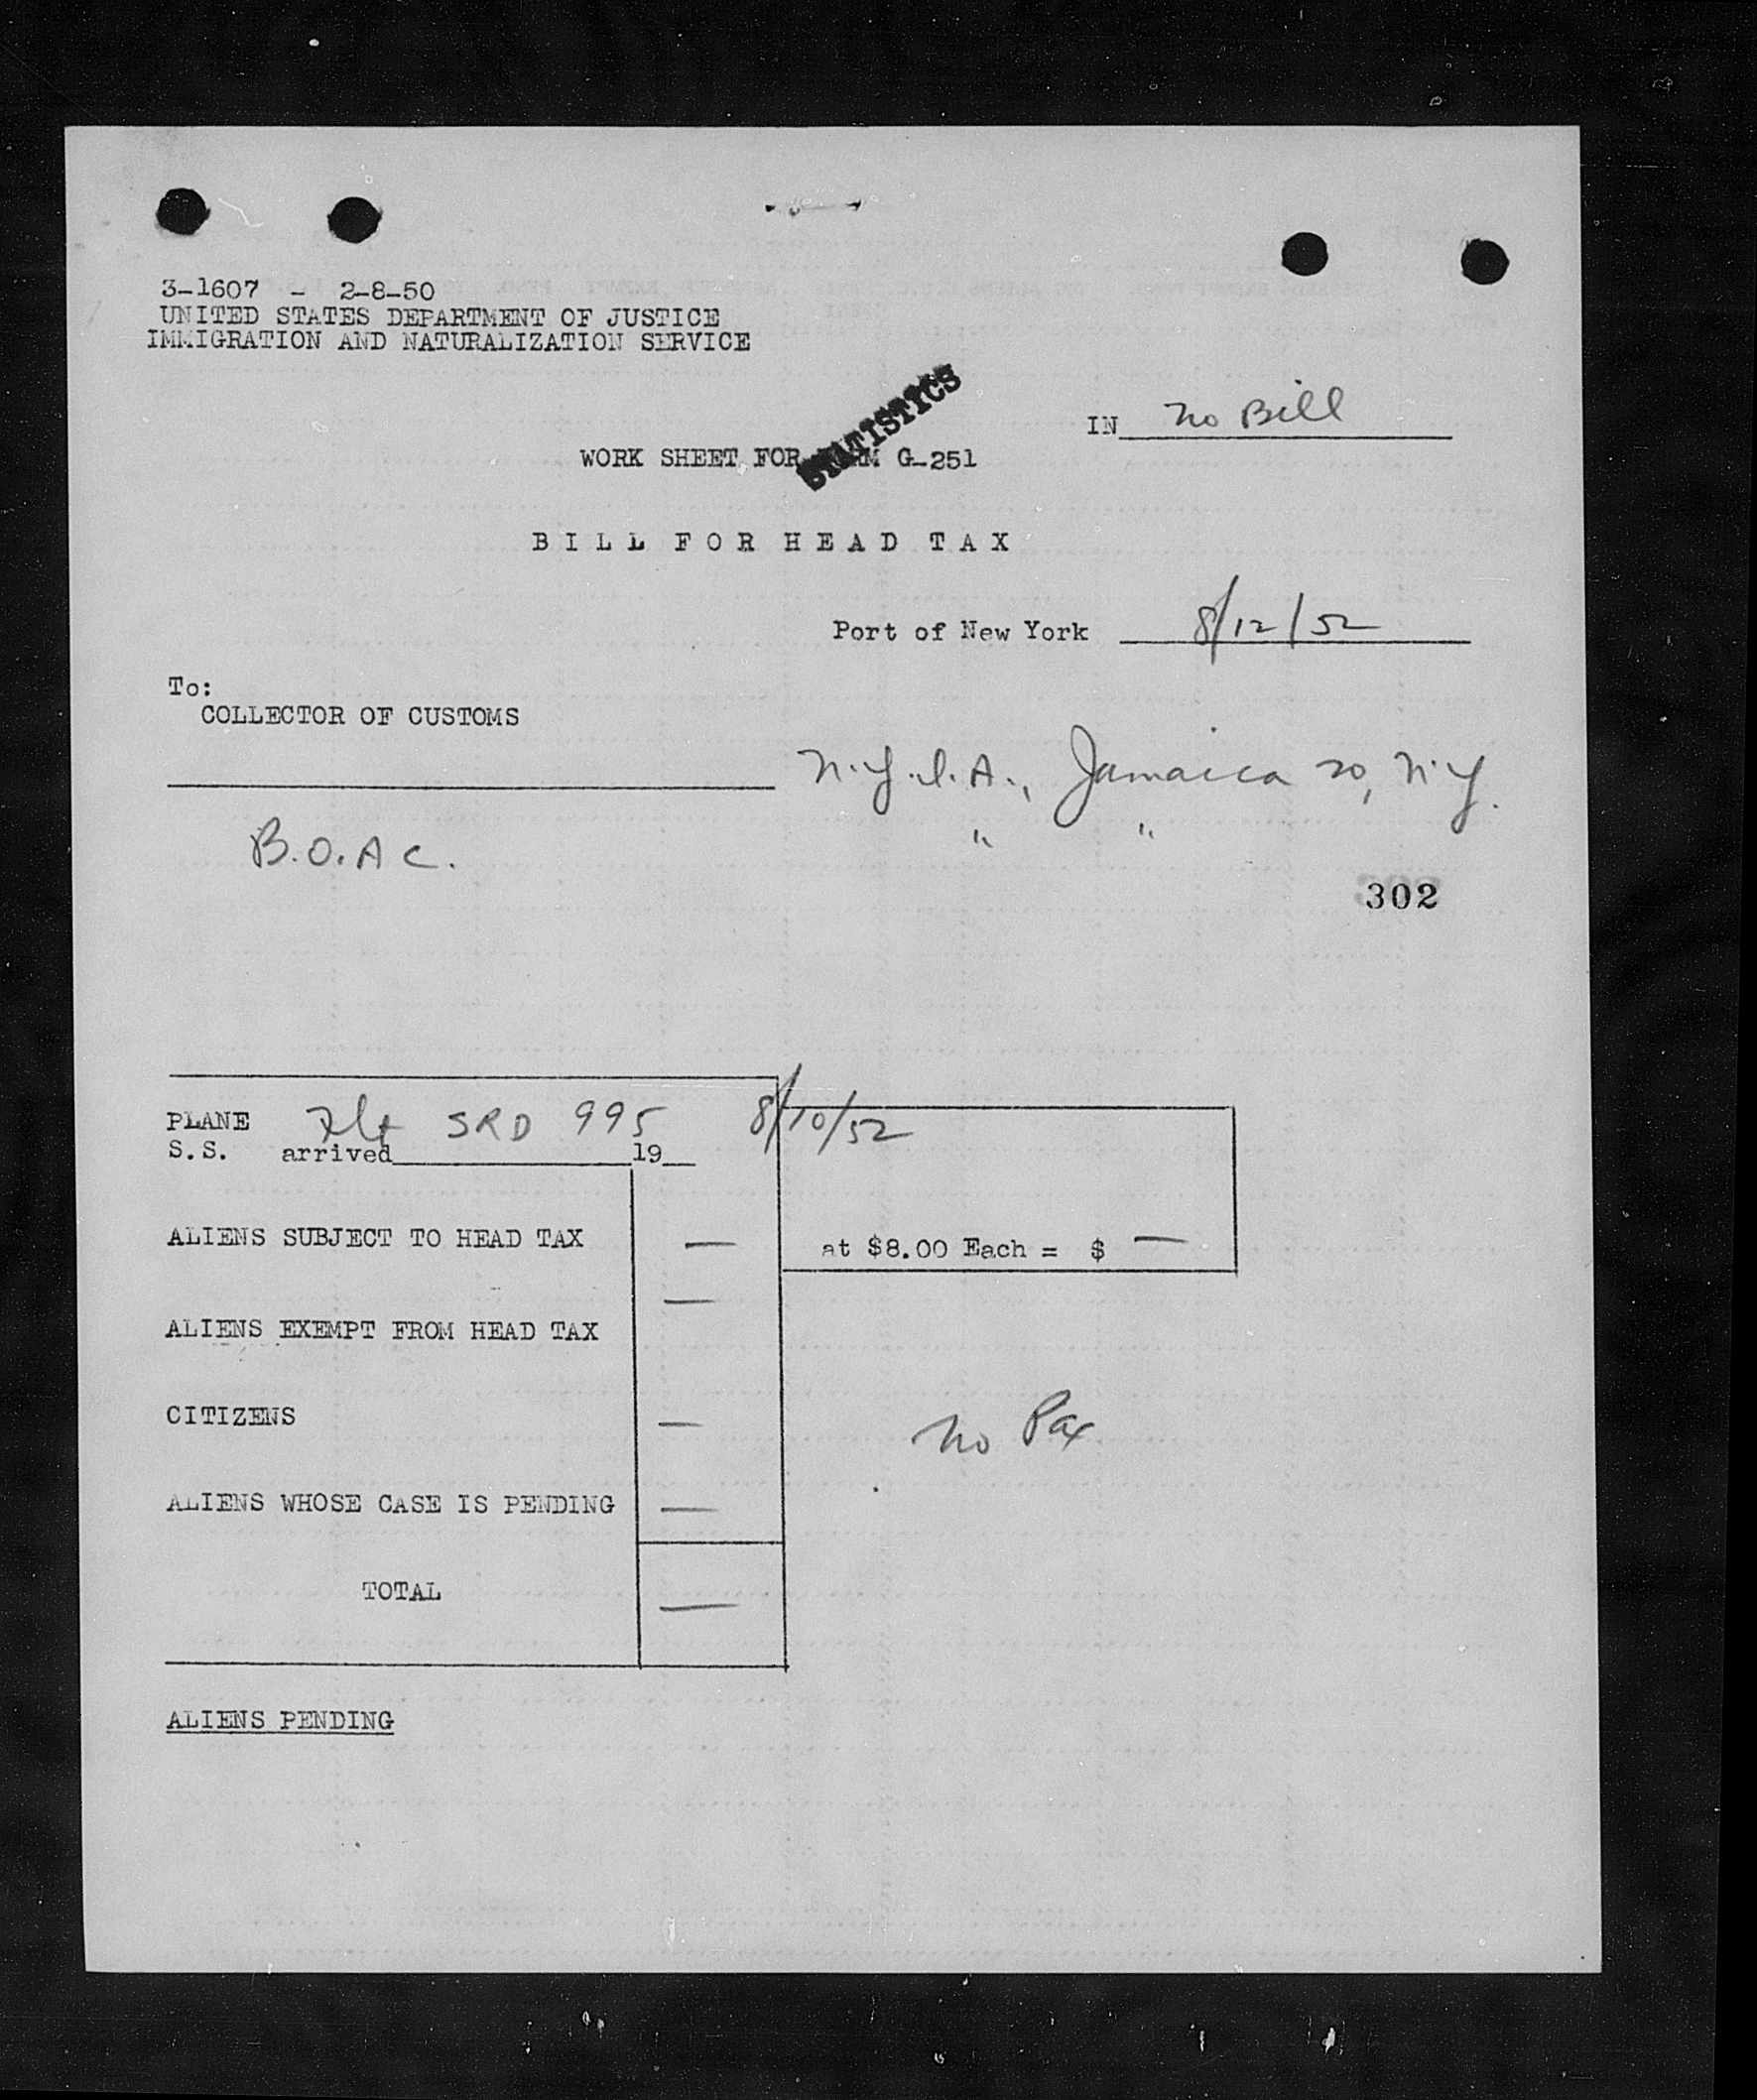 3-1607 - 2-8-50
UNITED STATES DEPARTMENT OF JUSTICE
IMMIGRATION AND NATURALIZATION SERVICE
STATISTICS
IN No Bill
WORK SHEET FOR FORM G-251
BILL FOR HEAD TAX
Port of New York 8/12/52
To:
COLLECTOR OF CUSTOMS
N.Y.I.A., Jamaica 20, N.Y.
B.O.A C. " "
302
PLANE Flt SRD 995 8/10/52
S.S. arrived 19
ALIENS SUBJECT TO HEAD TAX — at $8.00 Each = $ —
ALIENS EXEMPT FROM HEAD TAX —
CITIZENS —
No Pax
ALIENS WHOSE CASE IS PENDING —
TOTAL —
ALIENS PENDING